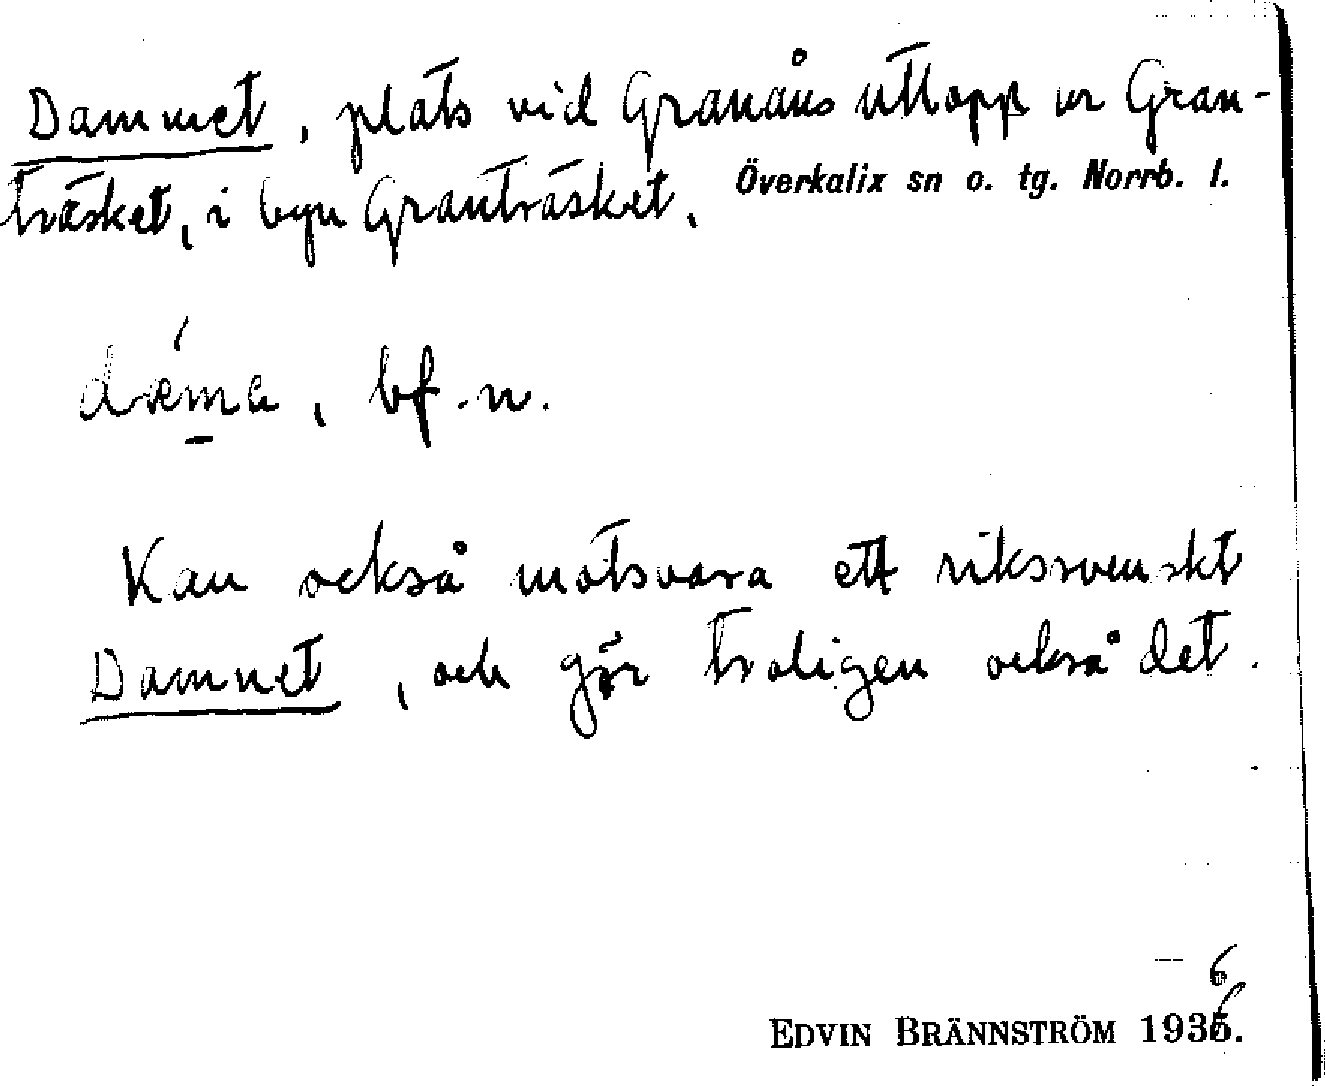 Dammet, plats vid Granåns utlopp ur Gran-
träsket, i byn Granträsket. Överkalix sn o. tg. Norrb. l.
bf. n.
Kan också motsvara ett rikssvenskt
Damnet, och gör troligen också det.
6
EDVIN BRÄNNSTRÖM 1935.